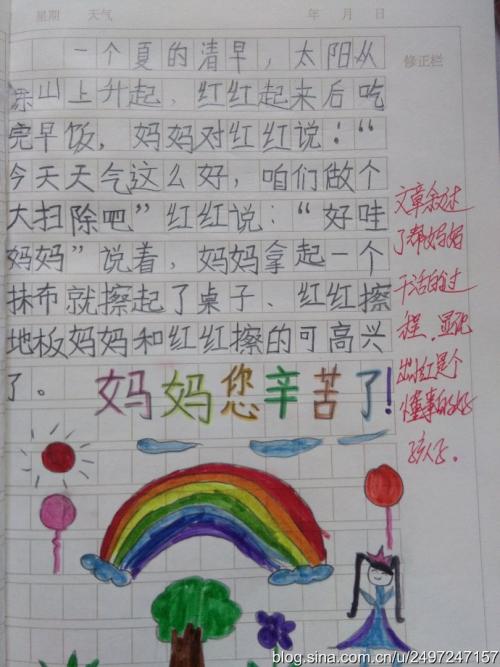 星期 天气 年 月 日
一个夏的清早，太阳从
山上升起，红红起来后吃
完早饭，妈妈对红红说：“
修正栏
今天天气这么好，咱们做个
大扫除吧”红红说：“好哇
妈妈”说着，妈妈拿起一个
抹布就擦起了桌子、红红擦
地板妈妈和红红擦的可高兴
了。
妈妈您辛苦了!
文章叙述
了帮妈妈
干活的过
程，显现
出红红是个
懂事的好
孩子。
blog.sina.com.cn/u/2497247157